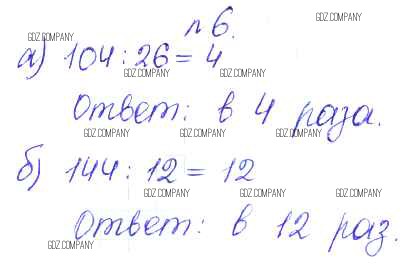 № 6.
GDZ.COMPANY
GDZ.COMPANY
а) 104 : 26 = 4
GDZ.COMPANY GDZ.COMPANY GDZ.COMPANY
Ответ: в 4 раза.
GDZ.COMPANY GDZ.COMPANY GDZ.COMPANY
б) 144 : 12 = 12
GDZ.COMPANY GDZ.COMPANY GDZ.COMPANY
Ответ: в 12 раз.
GDZ.COMPANY